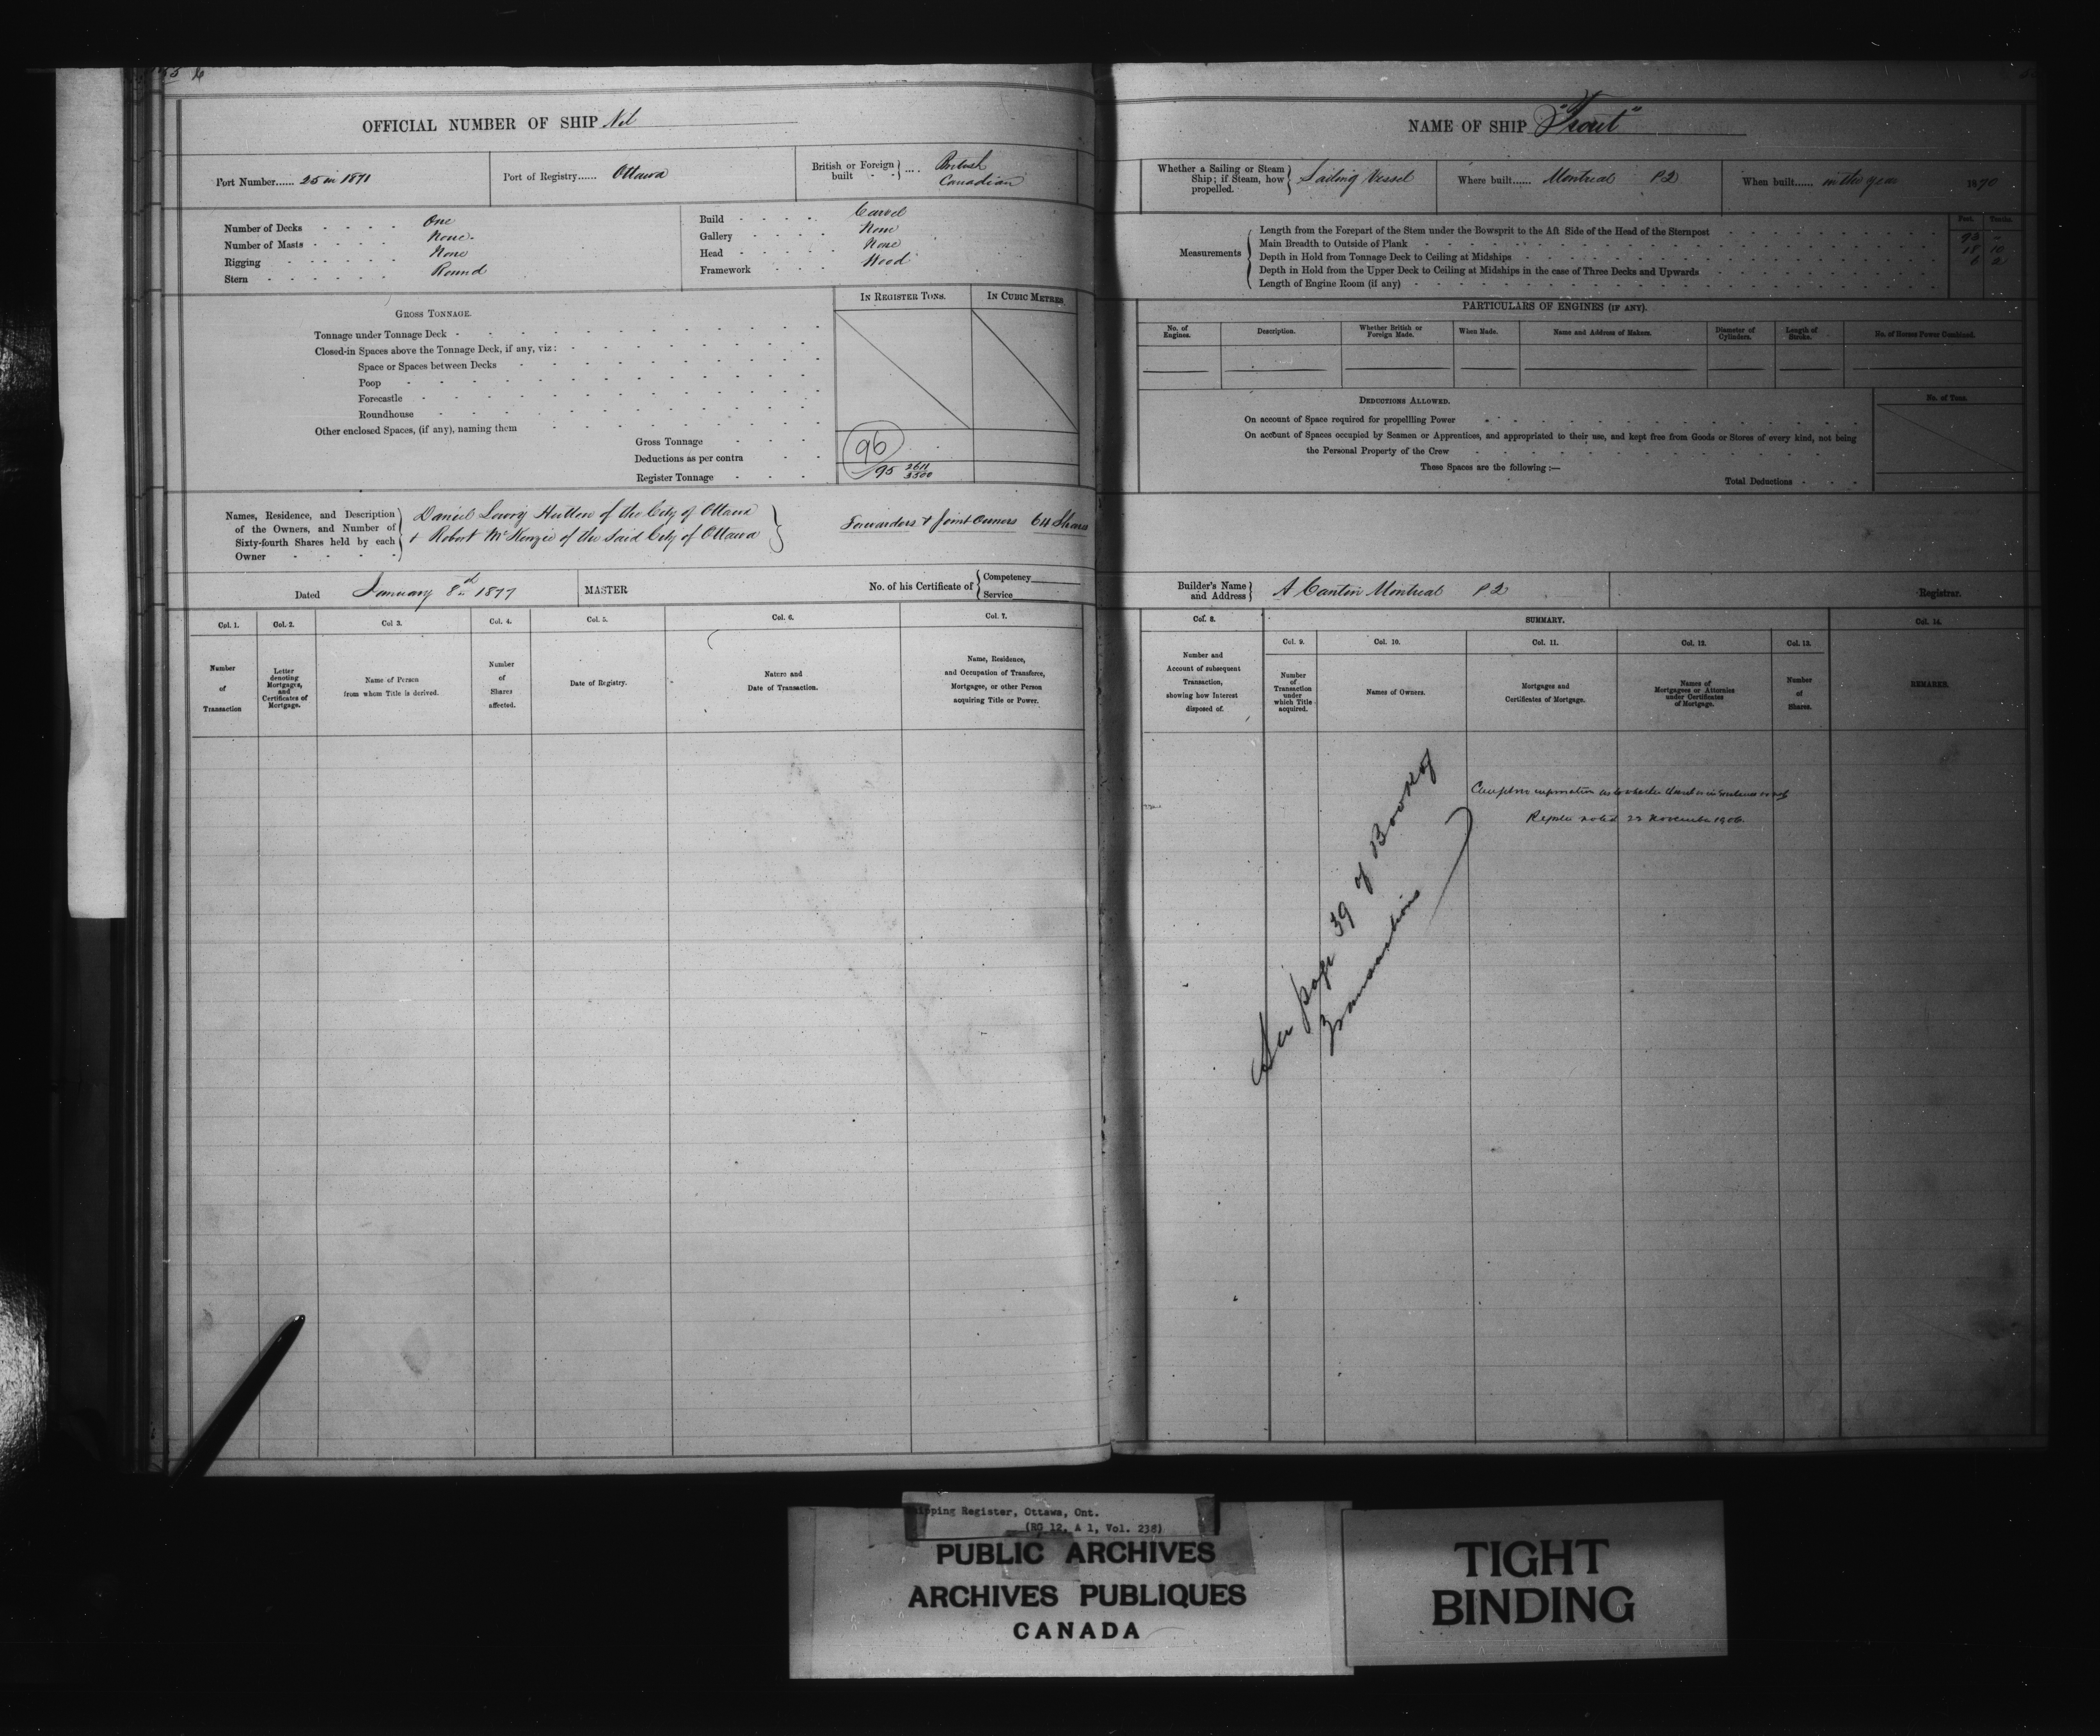 OFFICIAL NUMBER OF SHIP Nil
Port Number...... 25 in 1871
Port of Registry...... Ottawa
British or Foreign built - - } .... British Canadian
Number of Decks - - - - One
Number of Masts - - - - None
Rigging - - - - - None
Stern - - - - - - Round
Build - - - - Carvel
Gallery - - - - None
Head - - - - None
Framework - - - - Wood
IN REGISTER TONS.
IN CUBIC METRES.
GROSS TONNAGE.
Tonnage under Tonnage Deck
Closed-in Spaces above the Tonnage Deck, if any, viz:
Space or Spaces between Decks
Poop
Forecastle
Roundhouse
Other enclosed Spaces, (if any), naming them
Gross Tonnage 96
Deductions as per contra
Register Tonnage 95 2611/3500
Names, Residence, and Description
of the Owners, and Number of
Sixty-fourth Shares held by each
Owner
Daniel Lowry Hutton of the City of Ottawa
+ Robert McKenzie of the said City of Ottawa
Forwarders + Joint Owners 64 Shares
Dated January 8th 1877
MASTER
No. of his Certificate of { Competency
Service
Col. 1.
Col. 2.
Col 3.
Col. 4.
Col. 5.
Col. 6.
Col. 7.
Number
of
Transaction
Letter
denoting
Mortgages,
and
Certificates of
Mortgage.
Name of Person
from whom Title is derived.
Number
of
Shares
affected.
Date of Registry.
Nature and
Date of Transaction.
Name, Residence,
and Occupation of Transferee,
Mortgagee, or other Person
acquiring Title or Power.
NAME OF SHIP "Trout"
Whether a Sailing or Steam
Ship; if Steam, how
propelled.
Sailing Vessel
Where built...... Montreal PQ
When built...... in the year 1870
Measurements
Feet. Tenths.
Length from the Forepart of the Stem under the Bowsprit to the Aft Side of the Head of the Sternpost 93 -
Main Breadth to Outside of Plank 18 10
Depth in Hold from Tonnage Deck to Ceiling at Midships 6 2
Depth in Hold from the Upper Deck to Ceiling at Midships in the case of Three Decks and Upwards
Length of Engine Room (if any)
PARTICULARS OF ENGINES (IF ANY).
No. of Engines.
Description.
Whether British or Foreign Made.
When Made.
Name and Address of Makers.
Diameter of Cylinders.
Length of Stroke.
No. of Horses Power Combined.
DEDUCTIONS ALLOWED.
No. of Tons.
On account of Space required for propellling Power
On account of Spaces occupied by Seamen or Apprentices, and appropriated to their use, and kept free from Goods or Stores of every kind, not being
the Personal Property of the Crew
These Spaces are the following :—
Total Deductions
Builder's Name
and Address
A Cantin Montreal PQ
Registrar.
Col. 8.
SUMMARY.
Col. 14.
Col. 9.
Col. 10.
Col. 11.
Col. 12.
Col. 13.
Number and
Account of subsequent
Transaction,
showing how Interest
disposed of.
Number
of
Transaction
under
which Title
acquired.
Names of Owners.
Mortgages and
Certificates of Mortgage.
Names of
Mortgagees or Attornies
under Certificates
of Mortgage.
Number
of
Shares.
REMARKS.
See page 39 of Book of
Transactions
information as to whether vessel is in existence or not
Register noted 23 November 1906.
Shipping Register, Ottawa, Ont.
(RG 12, A 1, Vol. 238)
PUBLIC ARCHIVES
ARCHIVES PUBLIQUES
CANADA
TIGHT
BINDING